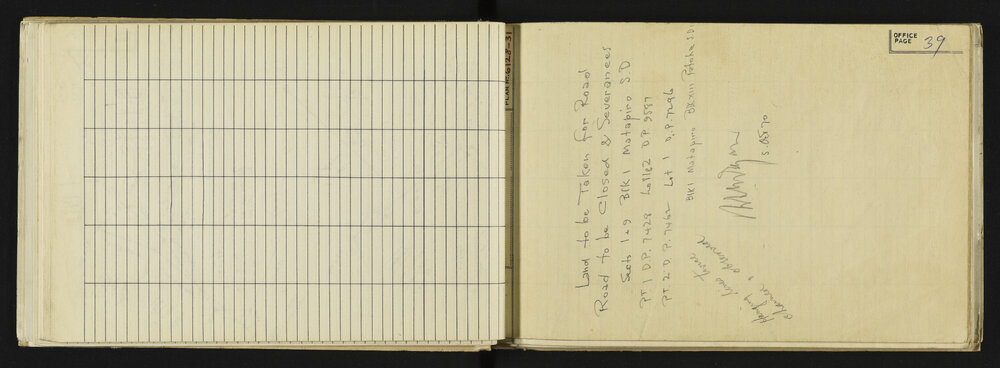 PLAN No. 6128-31
OFFICE PAGE 39
Land to be Taken for Road
Road to be Closed & Severances
Sects 1 & 9 Blk 1 Matapiro S.D
Pt. 1 D.P. 7428 Lot 1 & 2 D.P. 9597
Pt. 2 D.P. 7462 Lot 1 D.P. 7296
Blk 1 Matapiro Blk XIII Patoka S.D.
Hanging lines
& observed